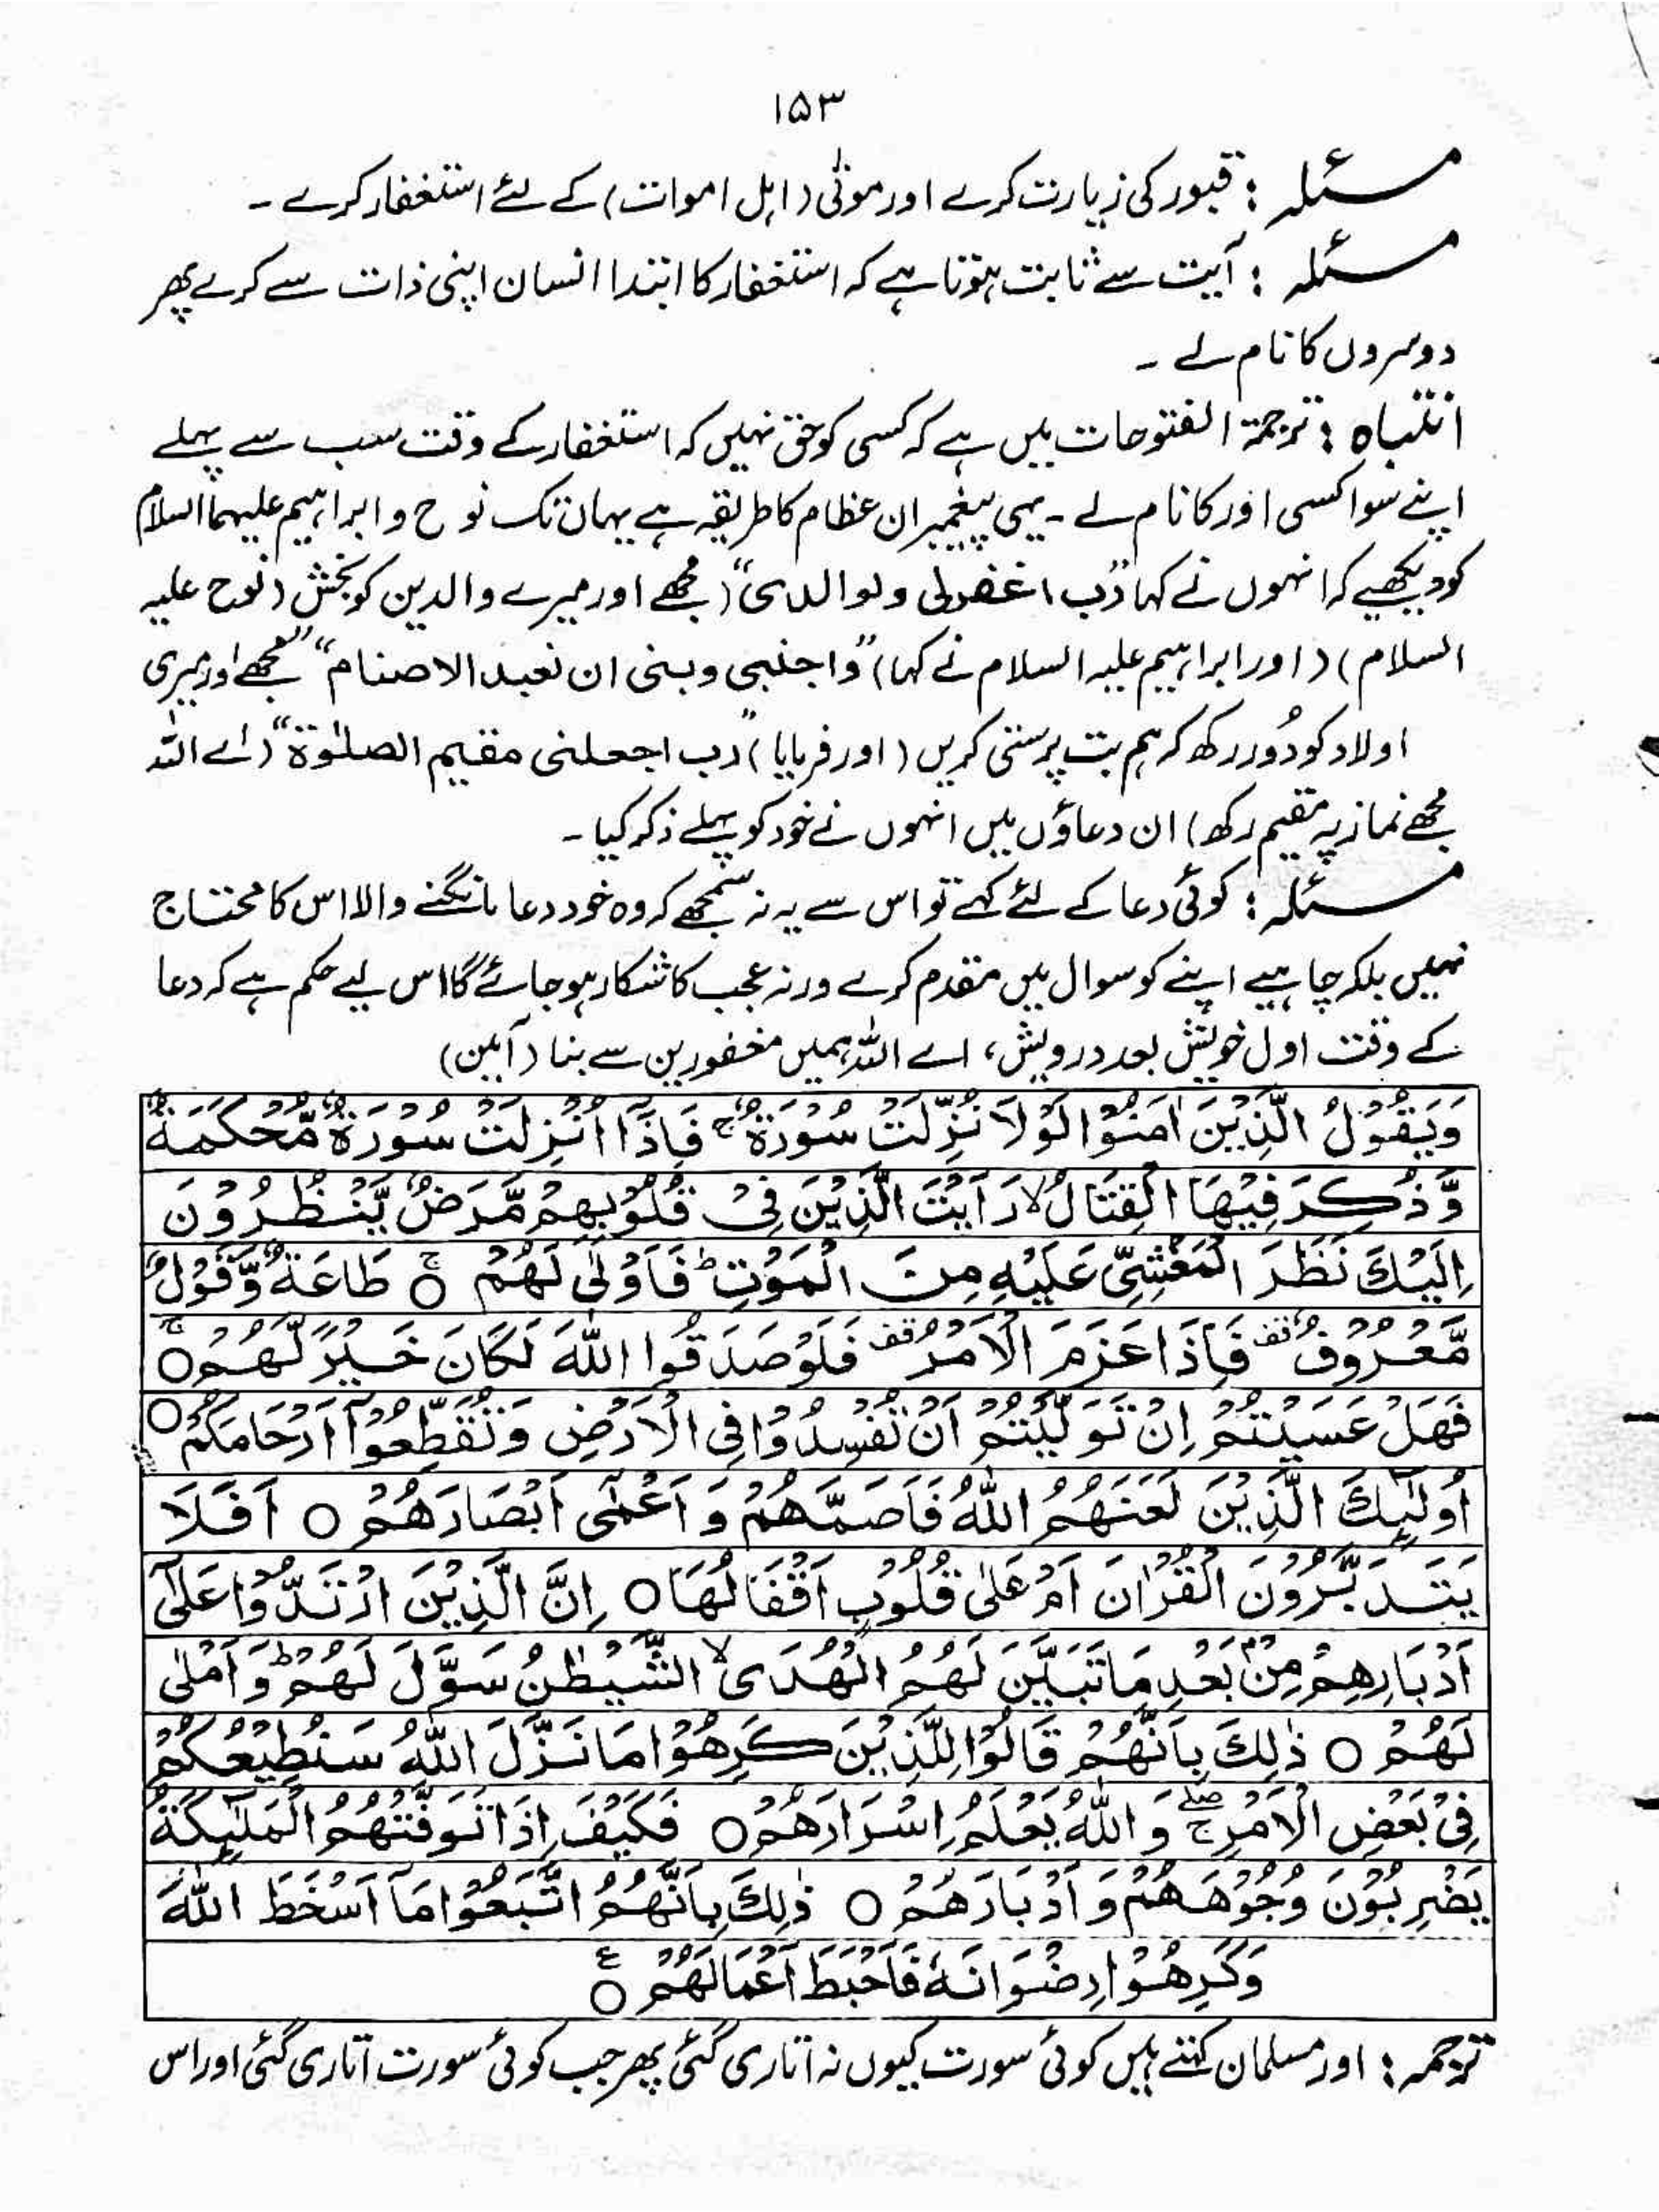 ۱۵۳
مسئلہ : قبور کی زیارت کرے اور موتٰی (اہل اموات) کے لئے استغفار کرے ۔
مسئلہ : آیت سے ثابت ہوتا ہے کہ استغفار کا ابتدا انسان اپنی ذات سے کرے پھر
دوسروں کا نام لے ۔
انتباہ : ترجمۃ الفتوحات میں ہے کہ کسی کو حق نہیں کہ استغفار کے وقت سب سے پہلے
اپنے سوا کسی اور کا نام لے ۔ یہی پیغمبران عظام کا طریقہ ہے یہاں تک نوح و ابراہیم علیہما السلام
کو دیکھیے کہ انہوں نے کہا "رب اغفرلی ولوالدی" (مجھے اور میرے والدین کو بخش (نوح علیہ
السلام) (اور ابراہیم علیہ السلام نے کہا) "واجنبی وبنی ان نعبد الاصنام" "مجھے اور میری
اولاد کو دُور رکھ کر ہم بت پرستی کریں (اور فرمایا) "رب اجعلنی مقیم الصلوٰۃ" (اے اللہ
مجھے نماز پہ مقیم رکھ) ان دعاؤں میں انہوں نے خود کو پہلے ذکر کیا ۔
مسئلہ : کوئی دعا کے لئے کہے تو اس سے یہ نہ سمجھے کہ وہ خود دعا مانگنے والا اس کا محتاج
نہیں بلکہ چاہیے اپنے کو سوال میں مقدم کرے ورنہ عجب کا شکار ہو جائے گا اس لیے حکم ہے کہ دعا
کے وقت اول خویش بعد درویش، اے اللہ ہمیں مغفورین سے بنا (آمین)
وَيَقُوْلُ الَّذِيْنَ اٰمَنُوْا لَوْلَا نُزِّلَتْ سُوْرَةٌ ۚ فَاِذَآ اُنْزِلَتْ سُوْرَةٌ مُّحْكَمَةٌ
وَّذُكِرَ فِيْهَا الْقِتَالُ ۙ رَاَيْتَ الَّذِيْنَ فِىْ قُلُوْبِهِمْ مَّرَضٌ يَّنْظُرُوْنَ
اِلَيْكَ نَظَرَ الْمَغْشِىِّ عَلَيْهِ مِنَ الْمَوْتِ ؕ فَاَوْلٰى لَهُمْ ۚ○ طَاعَةٌ وَّقَوْلٌ
مَّعْرُوْفٌ قف فَاِذَا عَزَمَ الْاَمْرُ قف فَلَوْ صَدَقُوا اللّٰهَ لَكَانَ خَيْرًا لَّهُمْ ۚ○
فَهَلْ عَسَيْتُمْ اِنْ تَوَلَّيْتُمْ اَنْ تُفْسِدُوْا فِى الْاَرْضِ وَتُقَطِّعُوْٓا اَرْحَامَكُمْ○
اُولٰٓئِكَ الَّذِيْنَ لَعَنَهُمُ اللّٰهُ فَاَصَمَّهُمْ وَ اَعْمٰٓى اَبْصَارَهُمْ ○ اَفَلَا
يَتَدَبَّرُوْنَ الْقُرْاٰنَ اَمْ عَلٰى قُلُوْبٍ اَقْفَالُهَا ○ اِنَّ الَّذِيْنَ ارْتَدُّوْا عَلٰٓى
اَدْبَارِهِمْ مِّنْۢ بَعْدِ مَا تَبَيَّنَ لَهُمُ الْهُدَى ۙ الشَّيْطٰنُ سَوَّلَ لَهُمْ ؕ وَاَمْلٰى
لَهُمْ ○ ذٰلِكَ بِاَنَّهُمْ قَالُوْا لِلَّذِيْنَ كَرِهُوْا مَا نَزَّلَ اللّٰهُ سَنُطِيْعُكُمْ
فِىْ بَعْضِ الْاَمْرِ صلے ۚ وَ اللّٰهُ يَعْلَمُ اِسْرَارَهُمْ ○ فَكَيْفَ اِذَا تَوَفَّتْهُمُ الْمَلٰٓئِكَةُ
يَضْرِبُوْنَ وُجُوْهَهُمْ وَ اَدْبَارَهُمْ ○ ذٰلِكَ بِاَنَّهُمُ اتَّبَعُوْا مَآ اَسْخَطَ اللّٰهَ
وَكَرِهُوْا رِضْوَانَهٗ فَاَحْبَطَ اَعْمَالَهُمْ ○ ع
ترجمہ : اور مسلمان کہتے ہیں کوئی سورت کیوں نہ اتاری گئی پھر جب کوئی سورت اتاری گئی اور اس